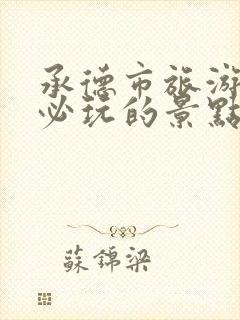 承德市旅游
必玩的景點
蘇錦梁